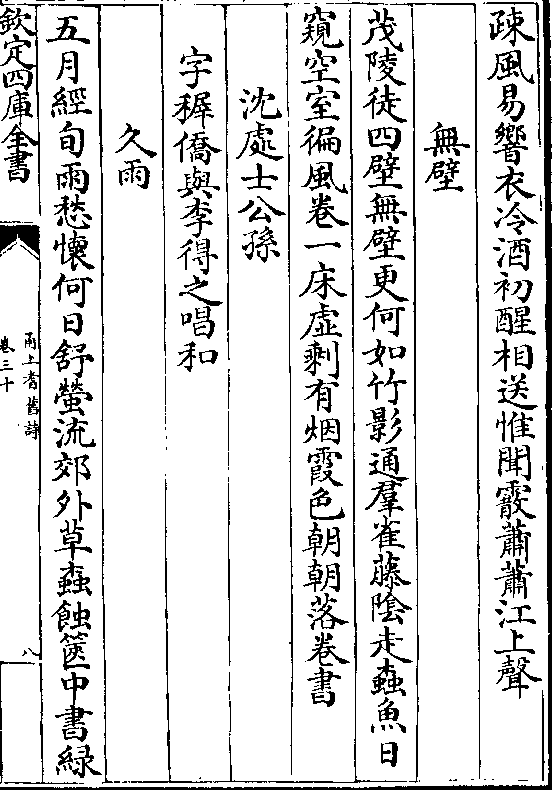 疎風易響衣冷酒初醒相送惟聞霰蕭蕭江上聲
無壁
茂陵徒四壁無壁更何如竹影通羣雀藤陰走蟲魚日
窺空室徧風卷一床虛剩有烟霞色朝朝落卷書
沈處士公孫
字穉僑與李得之唱和
久雨
五月經旬雨愁懷何日舒螢流郊外草蟲蝕篋中書緑
欽定四庫全書
甬上耆舊詩
卷三十
八